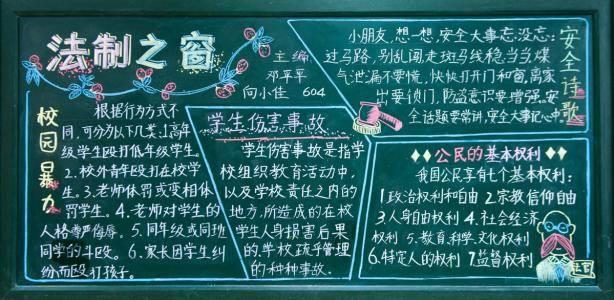 法制之窗
主编
邓平平
向小佳 604
校园暴力
根据行为方式不
同,可分为以下几类:1.高年
级学生殴打低年级学生。
2.校外青年殴打在校学
生。3.老师体罚或变相体
罚学生。4.老师对学生的
人格尊严侮辱。5.同年级或同班
同学的斗殴。6.家长因学生纠
纷而殴打孩子。
学生伤害事故
学生伤害事故是指学
校组织教育活动中,
以及学校责任之内的
地方,所造成的在校
学生人身损害后果
的,学校疏乎管理
的种种事故.
安全诗歌
小朋友,想一想,安全大事忘没忘:
过马路,别乱闯,走斑马线稳当当,煤
气泄漏不要慌,快快打开门和窗,离家
出要锁门,防盗意识要增强。安
全话题要常讲,安全大事记心中.
公民的基本权利
我国公民享有七个基本权利:
1.政治权利和自由 2.宗教信仰自由
3.人身自由权利 4.社会经济
权利 5.教育、科学、文化权利
6.特定人的权利 7.监督权利